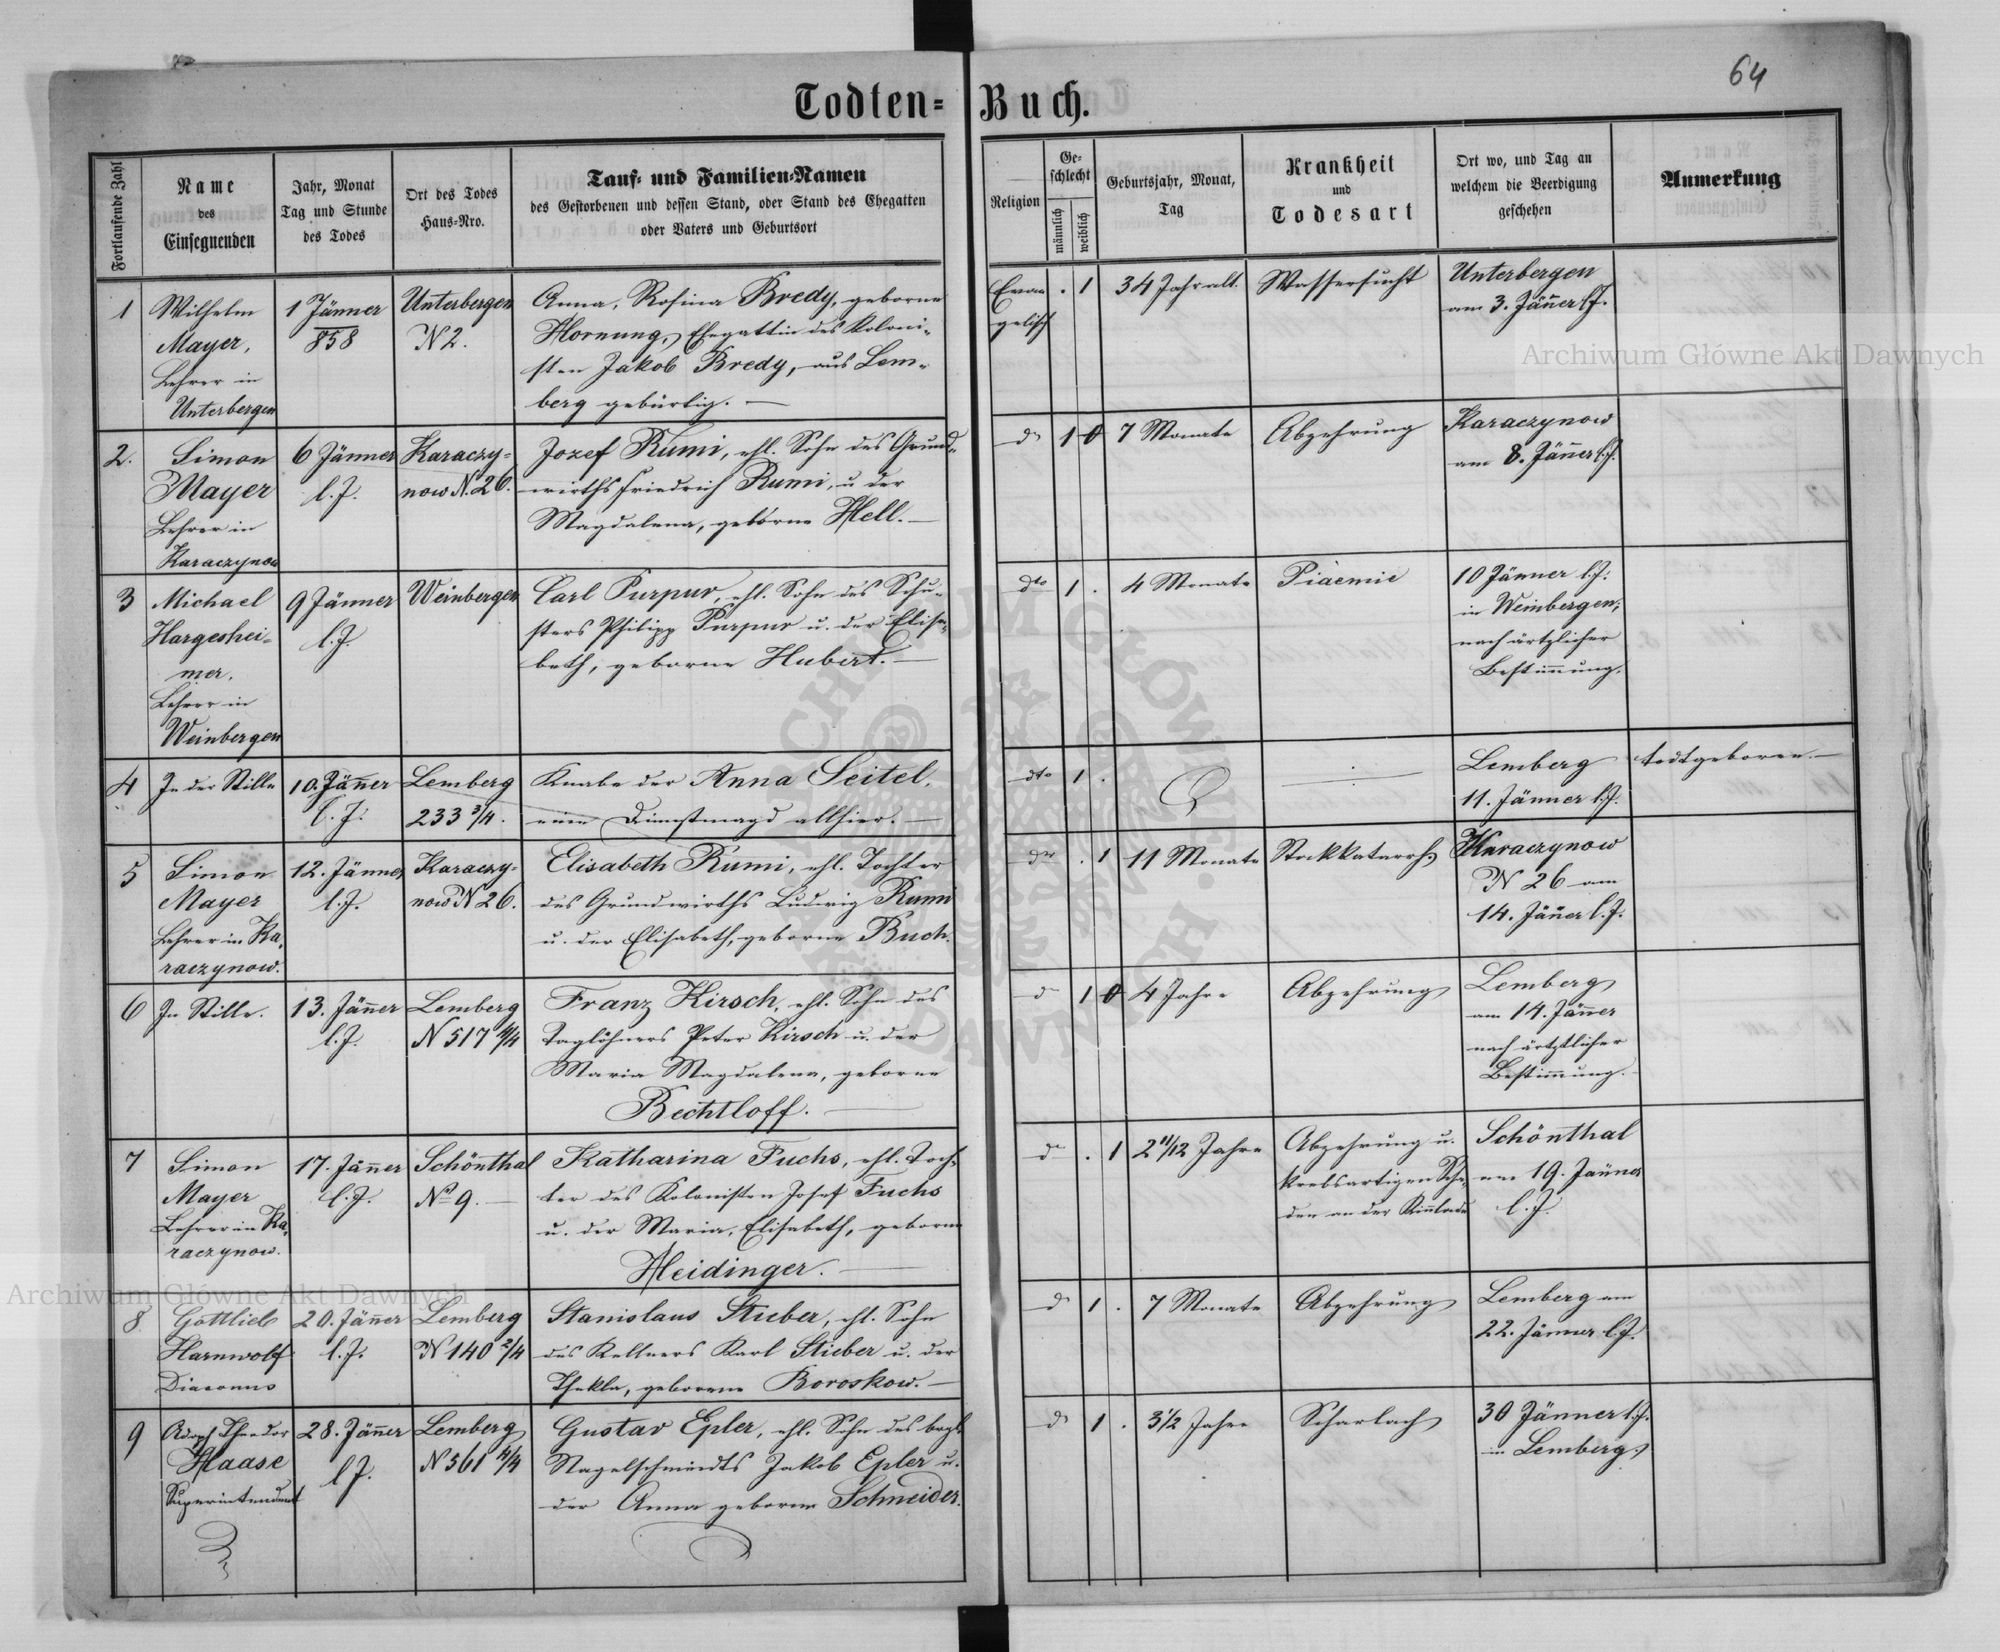 64
Todten-Buch.
Fortlaufende Zahl
Name
des
Einsegnenden
Jahr, Monat
Tag und Stunde
des Todes
Ort des Todes
Haus-Nro.
Tauf- und Familien-Namen
des Gestorbenen und dessen Stand, oder Stand des Ehegatten
oder Vaters und Geburtsort
Religion
Ge-
schlecht
männlich
weiblich
Geburtsjahr, Monat,
Tag
Krankheit
und
Todesart
Ort wo, und Tag an
welchem die Beerdigung
geschehen
Anmerkung
1
Wilhelm
Mayer,
Lehrer in
Unterbergen
1 Jänner
858
Unterbergen
N 2.
Anna, Rosina Bredy, geborne
Hornung, Ehegattin des Koloni-
sten Jakob Bredy, aus Lem-
berg gebürtig. —
Evan
gelisch
. 1
34 Jahr alt.
Wassersucht
Unterbergen
am 3. Jäner l. J.
2.
Simon
Mayer
Lehrer in
Karaczynow
6 Jänner
l. J.
Karaczy-
now N. 26.
Jozef Rumi, ehl. Sohn des Grund-
wirths Friedrich Rumi, u der
Magdalena, geborne Hell. —
do
1 0
7 Monate
Abzehrung
Karaczynow
am 8. Jäner l. J.
3
Michael
Hargeshei-
mer.
Lehrer in
Weinbergen
9 Jänner
l. J.
Weinbergen
Carl Purpur, ehl. Sohn des Schu-
sters Philipp Purpur u. der Elisa-
beth, geborne Hubert. —
dto
1 .
4 Monate
Piaemie
10 Jänner l. J.
in Weinbergen,
nach ärtzlicher
Bestimung.
4
In der Stille
10. Jäner
l. J.
Lemberg
233 3/4.
Knabe der Anna Seitel,
einer Dienstmagd allhier. —
dto
1 .
Lemberg
11. Jänner l. J.
todtgeboren. —
5
Simon
Mayer
Lehrer in Ka-
raczynow.
12. Jänner
l. J.
Karaczy-
now N 26.
Elisabeth Rumi, ehl. Tochter
des Grundwirths Ludwig Rumi
u. der Elisabeth, geborne Buch.
dto
. 1
11 Monate
Stockkatarrh
Karaczynow
N 26 am
14. Jäner l. J.
6
In Stille.
13. Jäner
l. J.
Lemberg
N 517 4/4
Franz Kirsch, ehl. Sohn des
Taglöhners Peter Kirsch u. der
Maria Magdalena, geborne
Bechtloff. —
do
1 0
4 Jahre
Abzehrung
Lemberg
am 14. Jäner
nach ärtztlicher
Bestimung.
7
Simon
Mayer
Lehrer in Ka-
raczynow.
17. Jäner
l. J.
Schönthal
No 9. —
Katharina Fuchs, ehl. Toch-
ter des Kolonisten Josef Fuchs
u. der Maria, Elisabeth, geborne
Heidinger. —
do
. 1
2 11/12 Jahre
Abzehrung u.
krebsartigen Scha-
den an der Kinlade
Schönthal
am 19. Jäner
l. J.
8
Gottlieb
Harnwolf
Diaconus
20. Jäner
l. J.
Lemberg
N 140 2/4
Stanislaus Stieber, ehl. Sohn
des Kellners Karl Stieber u. der
Thekla, geborene Boroskow. —
do
1 .
7 Monate
Abzehrung
Lemberg am
22. Jänner l. J.
9
Adolf Theodor
Haase
Superintendent
28. Jäner
l. J.
Lemberg
N 561 4/4
Gustav Epler, ehl. Sohn des
Nagelschmiedts Jakob Epler u.
der Anna geborne Schneider.
do
1 .
3 1/2 Jahre
Scharlach
30 Jänner l. J.
in Lemberg
Archiwum Główne Akt Dawnych
Archiwum Główne Akt Dawnych
ARCHIWUM GŁÓWNE AKT DAWNYCH